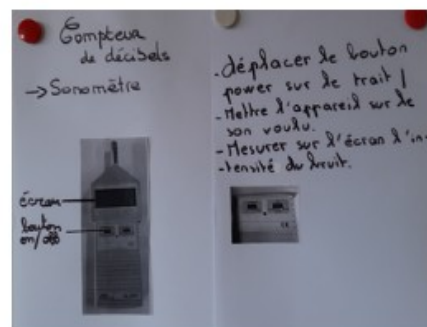 Compteur
de décibels
-> Sonomètre
écran
bouton
on/off
- déplacer le bouton
power sur le trait |
- Mettre l'appareil sur le
son voulu.
- Mesurer sur l'écran l'in-
-tensité du bruit.